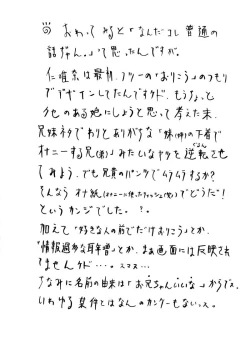 ㊾ おわってみると「なんだコレ普通の
話じゃん。」て思ったんですが。
仁唯奈は最初、フツーの"おりこう"のつもり
でデザインしてたんですケド、もうちょっと
クセのある娘にしようと思って考えた末、
兄妹ネタでわりとありがちな「妹(姉)の下着で
オナニーする兄(弟)」みたいなヤツを逆転させ
てみよう、でも兄貴のパンツでムラムラするか?
そんなら オナ紙(オナニーに使ったティッシュ(笑))でどうだ!
というカンジでした。
加えて「好きな人の前でだけおりこう」とか、
「情報過多な耳年増」とか、まぁ画面には反映でき
てませんケド…。スマヌ…
ちなみに名前の由来は「お兄ちゃんいいな」からですが、
いわゆる実存とはなんのカンケーもないっス。